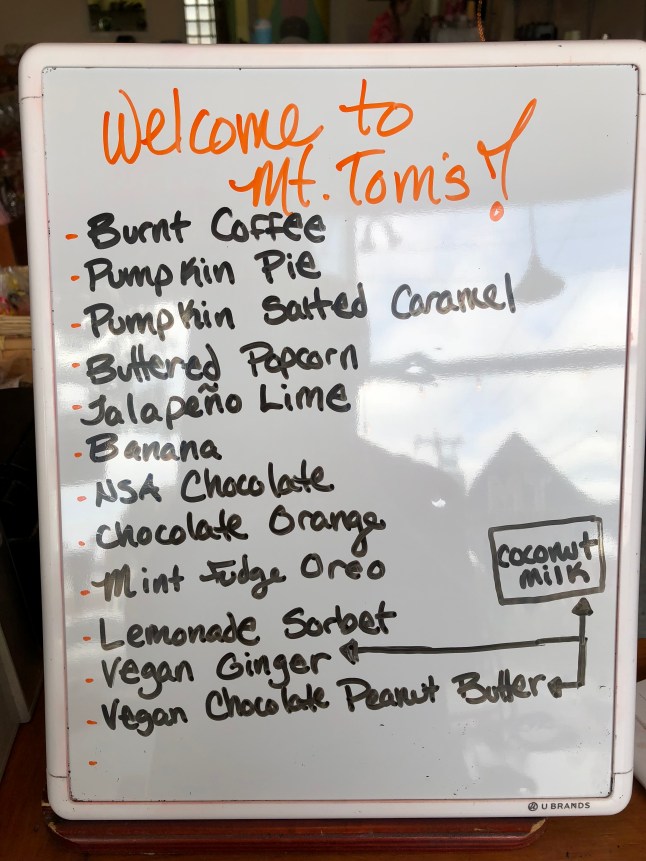 Welcome to
Mt. Tom's!
- Burnt Coffee
- Pumpkin Pie
- Pumpkin Salted Caramel
- Buttered Popcorn
- Jalapeño Lime
- Banana
- NSA Chocolate
- Chocolate Orange
- Mint Fudge Oreo
- Lemonade Sorbet
- Vegan Ginger
- Vegan Chocolate Peanut Butter
-
coconut
milk
U BRANDS